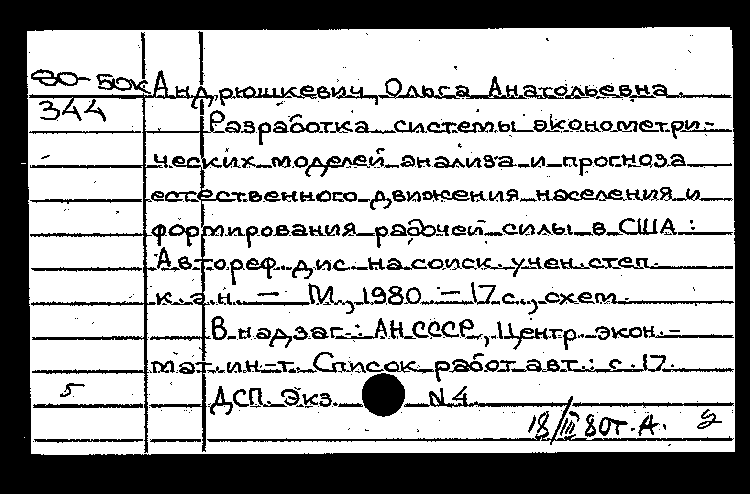 80-50к Андрюшкевич, Ольга Анатольевна.
344 Разработка системы эконометри-
ческих моделей анализа и прогноза
естественного движения населения и
формирования рабочей силы в США :
Автореф. дис. на соиск. учен. степ.
к.э.н. — М., 1980. — 17 с., схем.
В надзаг.: АН СССР, Центр. экон.-
мат. ин-т. Список работ авт.: с. 17.
5 ДСП. Экз. N 4.
18/III 80г. А.